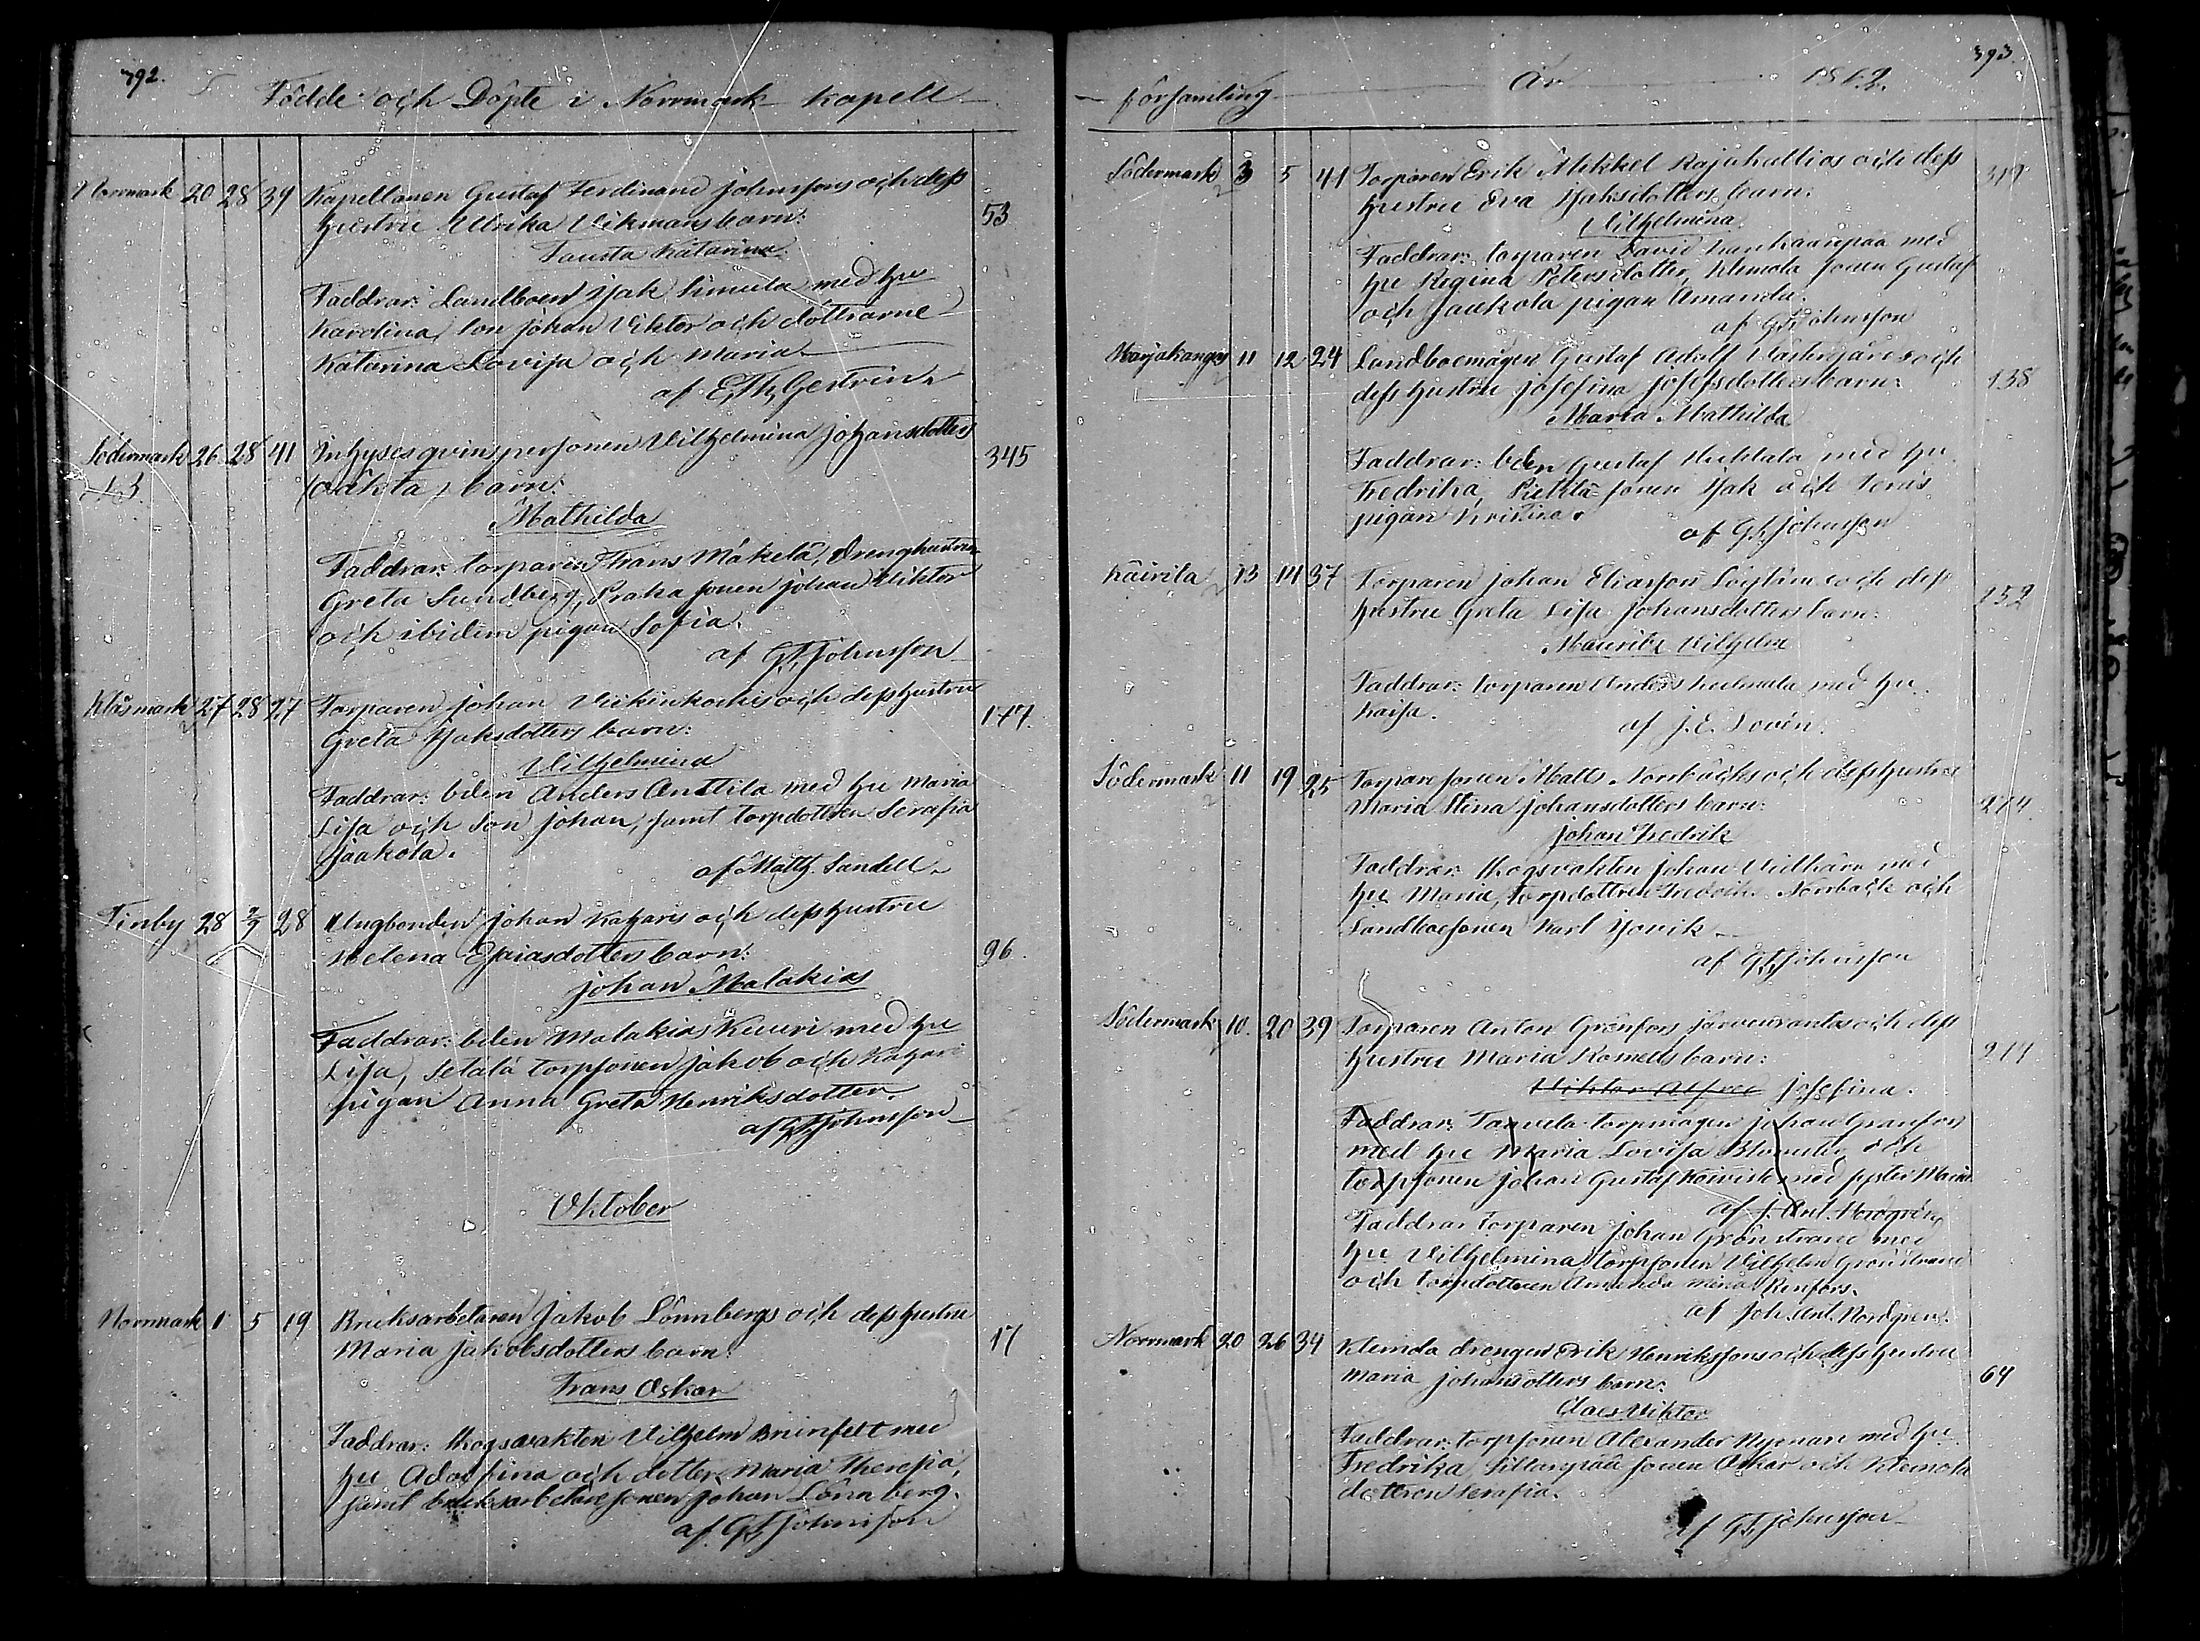 392.
Födde och Döpte i Norrmark kapell
Norrmark 20 28 39 Kapellanen Gustaf Ferdinand Johnssons och dess
hustru Ulrika Vikmans barn: 53
Fausta Katarina
Faddrar: Landboen Isak Simula med hu
Karolina, son Johan Viktor och döttrarne
Katarina Lovisa och Maria
af E. Th. Gestrin
Södermark 26 28 41 Inhyses qvinspersonen Vilhelmina Johansdotters 345
13. (oäkta) barn:
Mathilda
Faddrar: torparen Frans Mäkelä, drenghustrun
Greta Sundberg, Praka sonen Johan Viktor
och ibidem pigan Sofia.
af G. F. Johnsson
Klåsmark 27 28 27 Torparen Johan Viikinkoskis och dess hustru 177.
Greta Isaksdotters barn:
Vilhelmina
Faddrar: bden Anders Anttila med hu Maria
Lisa och son Johan, samt torpdottren Serafia
Jaakola.
af Matth. Sandell
Finby 28 2/9 28 Ungbonden Johan Kaharis och dess hustru
Helena Esaiasdotters barn: 96.
Johan Malakias
Faddrar: bden Malakias Kuuri med hu
Lisa, Setälä torpsonen Jakob och Kahari
pigan Anna Greta Henriksdotter.
af G. F. Johnsson
Oktober
Norrmark 1 5 19 Bruksarbetaren Jakob Lönnbergs och dess hustru
Maria Jakobsdotters barn: 17
Frans Oskar
Faddrar: Skogsvakten Vilhelm Brunfelt med
hu Adolfina och dotter Maria Theresia,
samt bruksarbetare sonen Johan Lönnberg.
af G. F. Johnsson
393.
församling År 1862.
Södermark 3 5 41 Torparen Erik Mikkel Rajakallios och dess
hustru Eva Isaksdotters barn:
Vilhelmina
Faddrar: torparen David Kankaanpää med
hu Regina Petersdotter, Klemola sonen Gustaf
och Jaakola pigan Amanda.
af G. F. Johnsson
Harjakangas 11 12 24 Landboemågen Gustaf Adolf och
dess hustru Josefina Josefsdotters barn: 138
Maria Mathilda
Faddrar: bden Gustaf Huhtala med hu
Fredrika, sonen Isak och
pigan Kristina.
af G. F. Johnsson
Kåirila 13 14 37 Torparen Johan Eliasson och dess
hustru Greta Lisa Johansdotters barn: 152
Mauritz Vilhelm
Faddrar: torparen Anders med hu
Kaisa.
af J. E. Lovén.
Södermark 11 19 25 Torparesonen Matts Norrbäcks och dess hustru
Maria Stina Johansdotters barn: 274.
Johan Fredrik
Faddrar: Skogsvakten Johan med
hu Maria, torpdottren Fredrika Norrbäck och
Landboesonen Karl Isovik
af G. F. Johnsson
Södermark 10. 20 39 Torparen Anton Grönfors Järvenrantas och dess
hustru Maria Romells barn: 214
Viktor Alfred Josefina.
Faddrar: torpmågen Johan Granfors
med hu Maria Lovisa Blomster och
torpsonen Johan Gustaf Koivisto med syster Maria
af J. Ant. Nordgrén
Faddrar torparen Johan Grönstrand med
hu Vilhelmina, torpsonen Vilhelm Grönstrand
och torpdottren Amanda Mina Renfors.
af Joh. Ant. Nordgren.
Norrmark 20 26 34 Klemola drengen Erik Henrikssons och dess hustru
Maria Johansdotters barn: 64
Claes Viktor
Faddrar: torpsonen Alexander Nyman med hu
Fredrika, Siltanpää sonen Oskar och Klemola
dottren Serafia.
af G. F. Johnsson